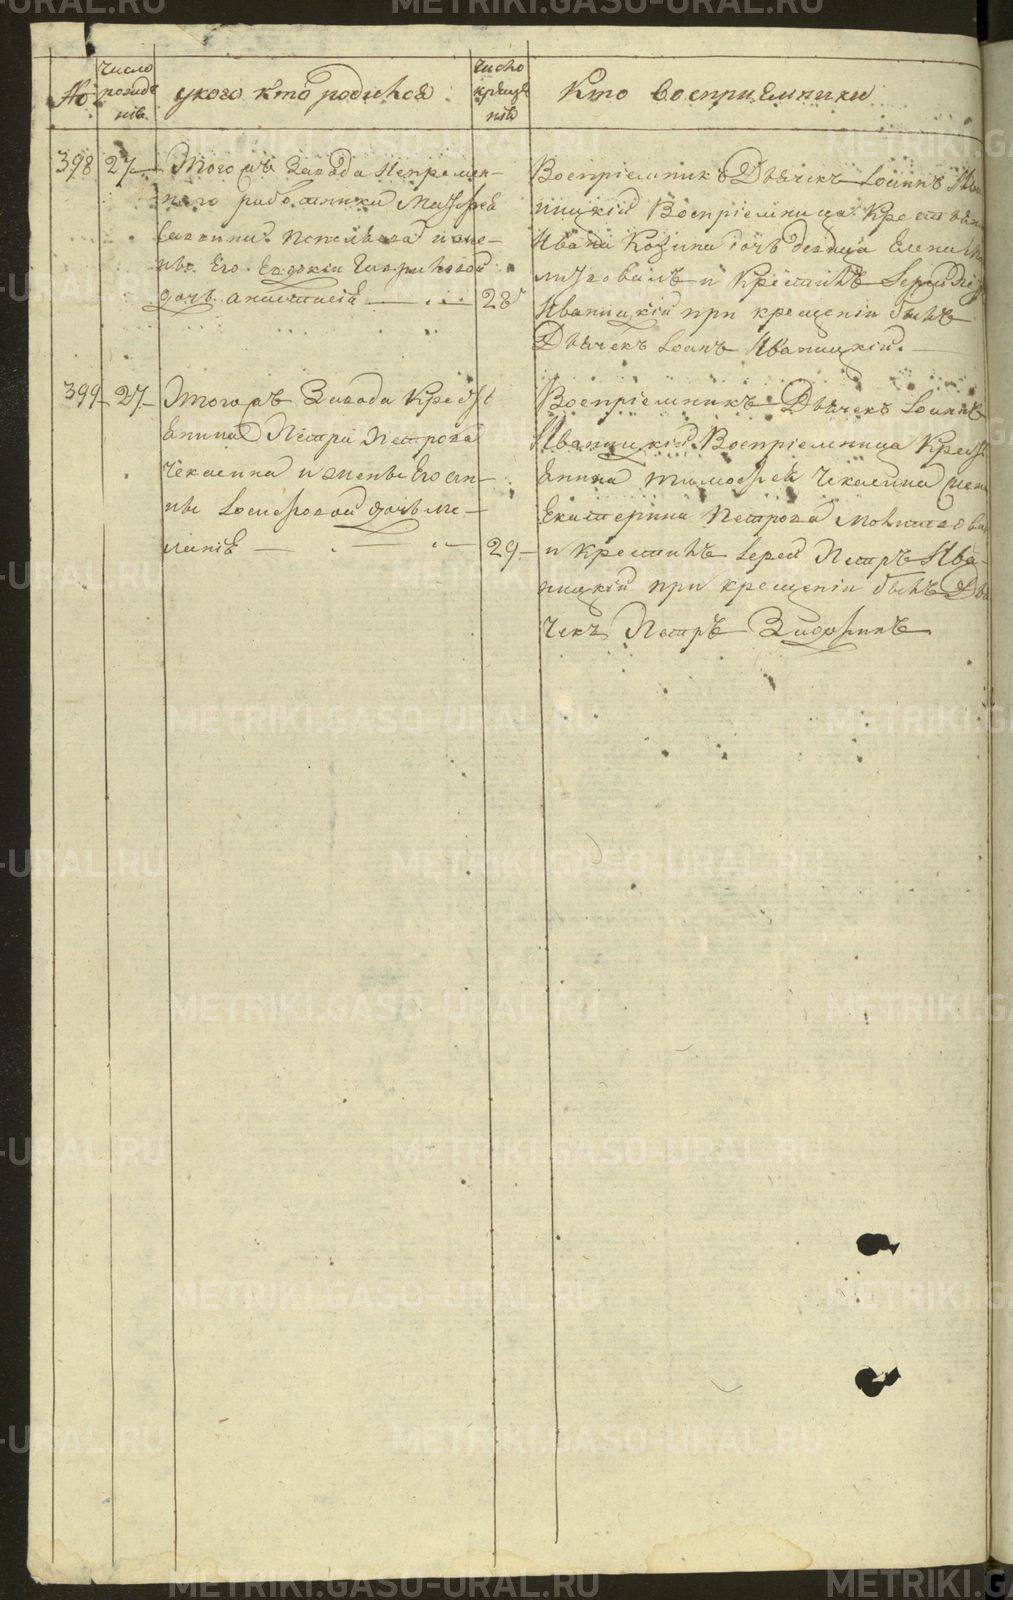 METRIKI.GASO-URAL.RU
№
число рожде нія
у кого кто родился
число креще нія
Кто восприемники
398
27
Того жъ Завода Непремен-
наго работника
и же-
ны Его Евдокіи Гавриловой
дочь анастасія
28
Воспріемникъ Дьячекъ Іоаннъ Ива
ницкій Воспріемница
Ивана Козина дочь девица Елена
и Крестилъ Іерей
Иваницкій при крещеніи былъ
Дьячекъ Іоанъ Иваницкій.
399
27
Того жъ Завода Крест
янина Петра Петрова
Чекасина и жены Его ан-
ны Іосифовой дочь ме-
ланія
29
Воспріемникъ Дьячекъ Іоаннъ
Иваницкій Воспріемница Крест
янина тимофея Чекасина жена
Екатерина Петрова
и Крестилъ Іерей Петръ Ива-
ницкій при крещеніи былъ Дья
чекъ Петръ